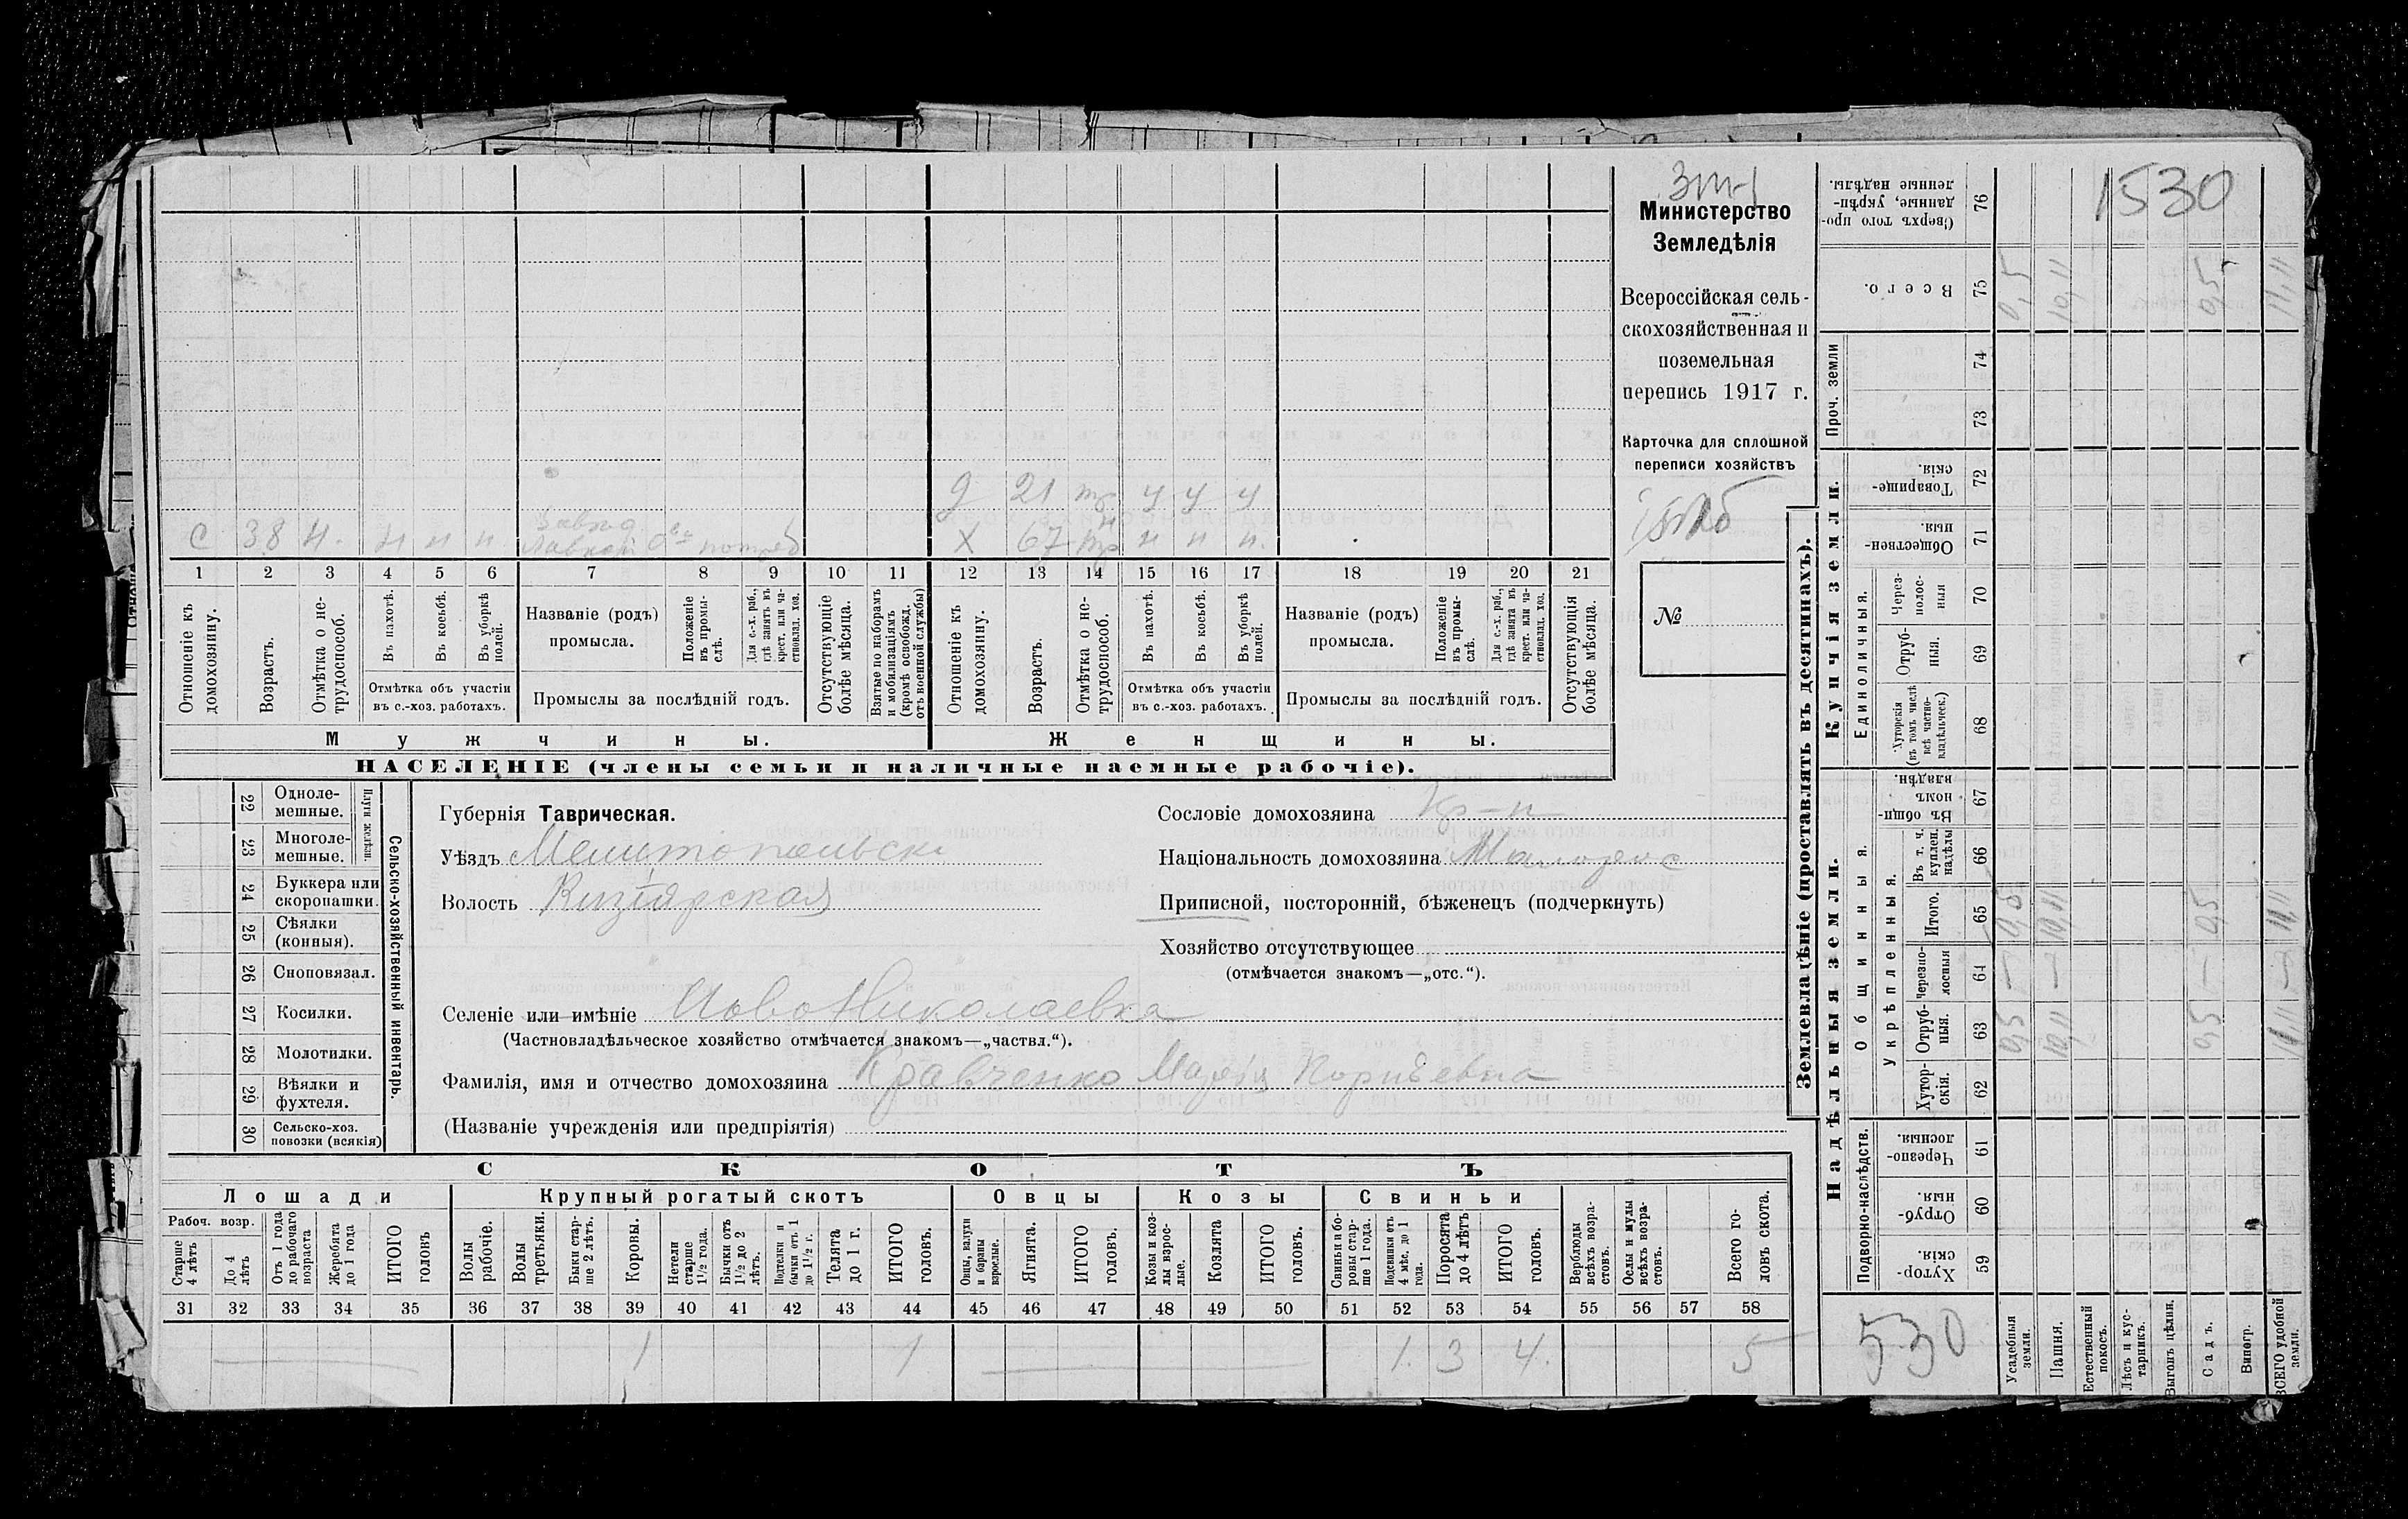 1530
Министерство
Земледѣлія
Всероссійская сель-
скохозяйственная и
поземельная
перепись 1917 г.
Карточка для сплошной
переписи хозяйствъ
№
д 21 у у у
С 38 н. н н н
Х 67 н н н.
1 2 3 4 5 6 7 8 9 10 11 12 13 14 15 16 17 18 19 20 21
Отношеніе къ домохозяину.
Возрастъ.
Отмѣтка о не-трудоспособ.
Въ пахотѣ.
Въ косьбѣ.
Въ уборкѣ полей.
Отмѣтка объ участіи
въ с.-хоз. работахъ.
Названіе (родъ)
промысла.
Положеніе въ промы-слѣ.
Для с.-х. раб., гдѣ занятъ въ крест. или ча-стновлад. хоз.
Промыслы за послѣдній годъ.
Отсутствующіе болѣе мѣсяца.
Взятые по наборамъ и мобилизаціямъ (кромѣ освобожд. отъ военной службы)
Отношеніе къ домохозяину.
Возрастъ.
Отмѣтка о не-трудоспособ.
Въ пахотѣ.
Въ косьбѣ.
Въ уборкѣ полей.
Отмѣтка объ участіи
въ с.-хоз. работахъ.
Названіе (родъ)
промысла.
Положеніе въ промы-слѣ.
Для с.-х. раб., гдѣ занята въ крест. или ча-стновлад. хоз.
Промыслы за послѣдній годъ.
Отсутствующія болѣе мѣсяца.
Мужчины.
Женщины.
НАСЕЛЕНІЕ (члены семьи и наличные наемные рабочіе).
Сельско-хозяйственный инвентарь.
Плуги желѣзн.
22 Однолемешные.
23 Многоле-мешные.
24 Буккера или скоропашки.
25 Сѣялки (конныя).
26 Сноповязал.
27 Косилки.
28 Молотилки.
29 Вѣялки и фухтеля.
30 Сельско-хоз. повозки (всякія)
Губернія Таврическая.
Уѣздъ Мелитопольск
Волость Кизіярская
Селеніе или имѣніе Ново Николаевка
(Частновладѣльческое хозяйство отмѣчается знакомъ—„частвл.“).
Фамилія, имя и отчество домохозяина Кравченко Марія Корнѣевна
(Названіе учрежденія или предпріятія)
Сословіе домохозяина Кр-н
Національность домохозяина Малорос
Приписной, посторонній, бѣженецъ (подчеркнуть)
Хозяйство отсутствующее
(отмѣчается знакомъ—„отс.“).
СКОТЪ
Лошади
Крупный рогатый скотъ
Овцы
Козы
Свиньи
Рабоч. возр.
Старше 4 лѣтъ
До 4 лѣтъ
Отъ 1 года до рабочаго возраста
Жеребята до 1 года
ИТОГО головъ
Волы рабочіе.
Волы третьяки.
Быки стар-ше 2 лѣтъ.
Коровы.
Нетели старше 1½ года.
Бычки отъ 1½ до 2 лѣтъ.
Подтелки и бычки отъ 1 до 1½ г.
Телята до 1 г.
ИТОГО головъ.
Овцы, валухи и бараны взрослые.
Ягнята.
ИТОГО головъ.
Козы и коз-лы взрос-лые.
Козлята
ИТОГО головъ.
Свиньи и бо-ровы стар-ше 1 года.
Подсвинки отъ 4 мѣс. до 1 года.
Поросята до 4 лѣтъ
ИТОГО головъ.
Верблюды всѣхъ возра-стовъ.
Ослы и мулы всѣхъ возра-стовъ.
Всего го-ловъ скота.
31 32 33 34 35 36 37 38 39 40 41 42 43 44 45 46 47 48 49 50 51 52 53 54 55 56 57 58
1 1 1. 3 4. 5
Землевладѣніе (проставлять въ десятинахъ).
Надѣльныя земли.
Купчія земли.
Проч. земли
Подворно-наслѣдств.
Общинныя.
Укрѣпленныя.
Единоличныя.
76 Сверхъ того про-данные, укрѣп-ленные надѣлы.
75 Всего. 0,5 10,11 0,5 11,11
74
73
72 Товарище-скія.
71 Обществен-ныя.
70 Через-полос-ныя
69 Отруб-ныя.
68 Хуторскія (въ томъ числѣ всѣ частно-владѣльческ.)
67 Въ общи-номъ владѣн.
66 Въ т. ч. куплен. надѣлы
65 Итого. 0,5 10,11 0,5 11,11
64 Черезпо-лосныя
63 Отруб-ныя. 0,5 10,11 0,5 11,11
62 Хутор-скія.
61 Черезпо-лосныя.
60 Отруб-ныя.
59 Хутор-скія.
530
Усадебныя земли.
Пашня.
Естественный покосъ.
Лѣсъ и кус-тарникъ.
Выгонъ цѣлин.
Садъ.
Виногр.
ВСЕГО удобной земли.